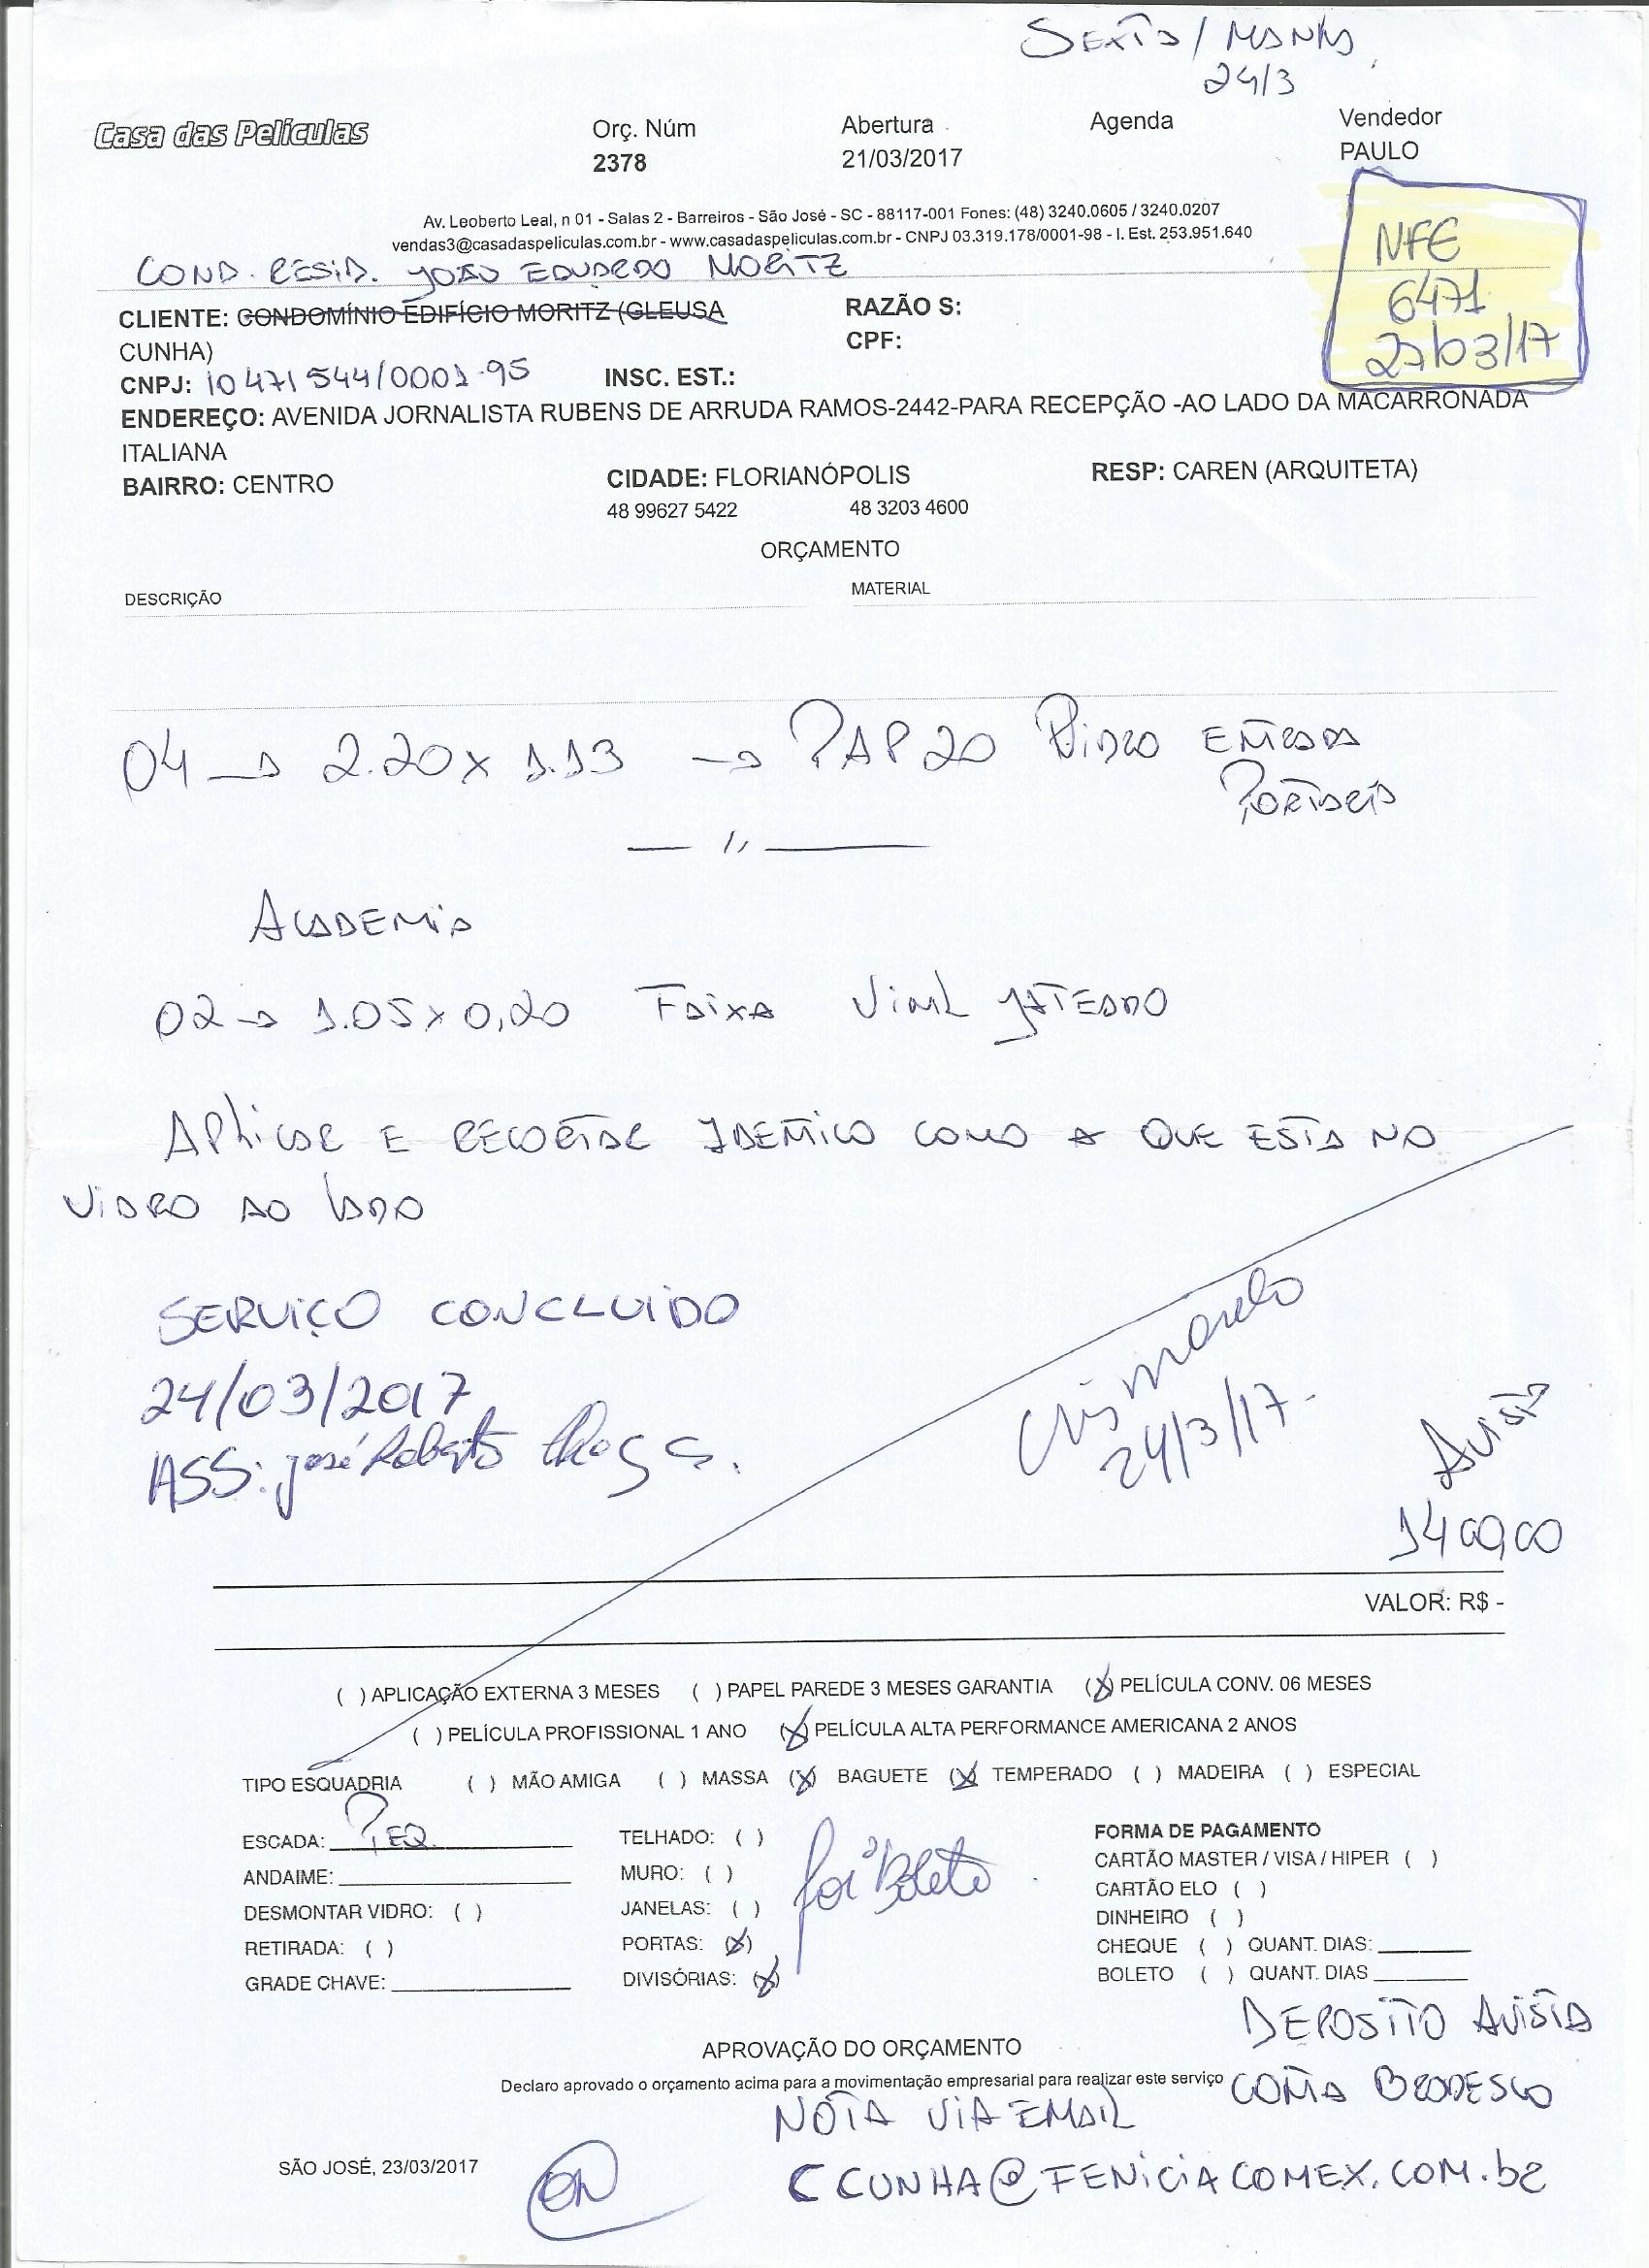 SEXTA / MANHÃ
24/3
Casa das Películas
Orç. Núm
2378
Abertura
21/03/2017
Agenda
Vendedor
PAULO
Av. Leoberto Leal, n 01 - Salas 2 - Barreiros - São José - SC - 88117-001 Fones: (48) 3240.0605 / 3240.0207
vendas3@casadaspeliculas.com.br - www.casadaspeliculas.com.br - CNPJ 03.319.178/0001-98 - I. Est. 253.951.640
NFE
6471
27/03/17
COND. RESID. JOÃO EDUARDO MORITZ
CLIENTE: CONDOMÍNIO EDIFÍCIO MORITZ (GLEUSA
CUNHA)
RAZÃO S:
CPF:
CNPJ: 10 471 544/0001-95
INSC. EST.:
ENDEREÇO: AVENIDA JORNALISTA RUBENS DE ARRUDA RAMOS-2442-PARA RECEPÇÃO -AO LADO DA MACARRONADA
ITALIANA
BAIRRO: CENTRO
CIDADE: FLORIANÓPOLIS
RESP: CAREN (ARQUITETA)
48 99627 5422
48 3203 4600
ORÇAMENTO
DESCRIÇÃO
MATERIAL
04 → 2.20 x 1.13 → PAP 20 VIDRO ENTRADA
PORTARIA
ACADEMIA
02 → 1.05 x 0,20 FAIXA VINIL JATEADO
APLICAR E RECORTAR IDENTICO COMO A QUE ESTA NO
VIDRO AO LADO
SERVIÇO CONCLUIDO
24/03/2017
ASS: José Roberto
24/3/17.
AVISTA
1400,00
VALOR: R$ -
( ) APLICAÇÃO EXTERNA 3 MESES ( ) PAPEL PAREDE 3 MESES GARANTIA (X) PELÍCULA CONV. 06 MESES
( ) PELÍCULA PROFISSIONAL 1 ANO (X) PELÍCULA ALTA PERFORMANCE AMERICANA 2 ANOS
TIPO ESQUADRIA ( ) MÃO AMIGA ( ) MASSA (X) BAGUETE (X) TEMPERADO ( ) MADEIRA ( ) ESPECIAL
ESCADA: PEQ
ANDAIME:
DESMONTAR VIDRO: ( )
RETIRADA: ( )
GRADE CHAVE:
TELHADO: ( )
MURO: ( )
JANELAS: ( )
PORTAS: (X)
DIVISÓRIAS: (X)
foi Boleto
FORMA DE PAGAMENTO
CARTÃO MASTER / VISA / HIPER ( )
CARTÃO ELO ( )
DINHEIRO ( )
CHEQUE ( ) QUANT. DIAS:
BOLETO ( ) QUANT. DIAS
DEPOSITO AVISTA
CONTA BRADESCO
APROVAÇÃO DO ORÇAMENTO
Declaro aprovado o orçamento acima para a movimentação empresarial para realizar este serviço
NOTA VIA EMAIL
CCUNHA@FENICIACOMEX.COM.br
SÃO JOSÉ, 23/03/2017